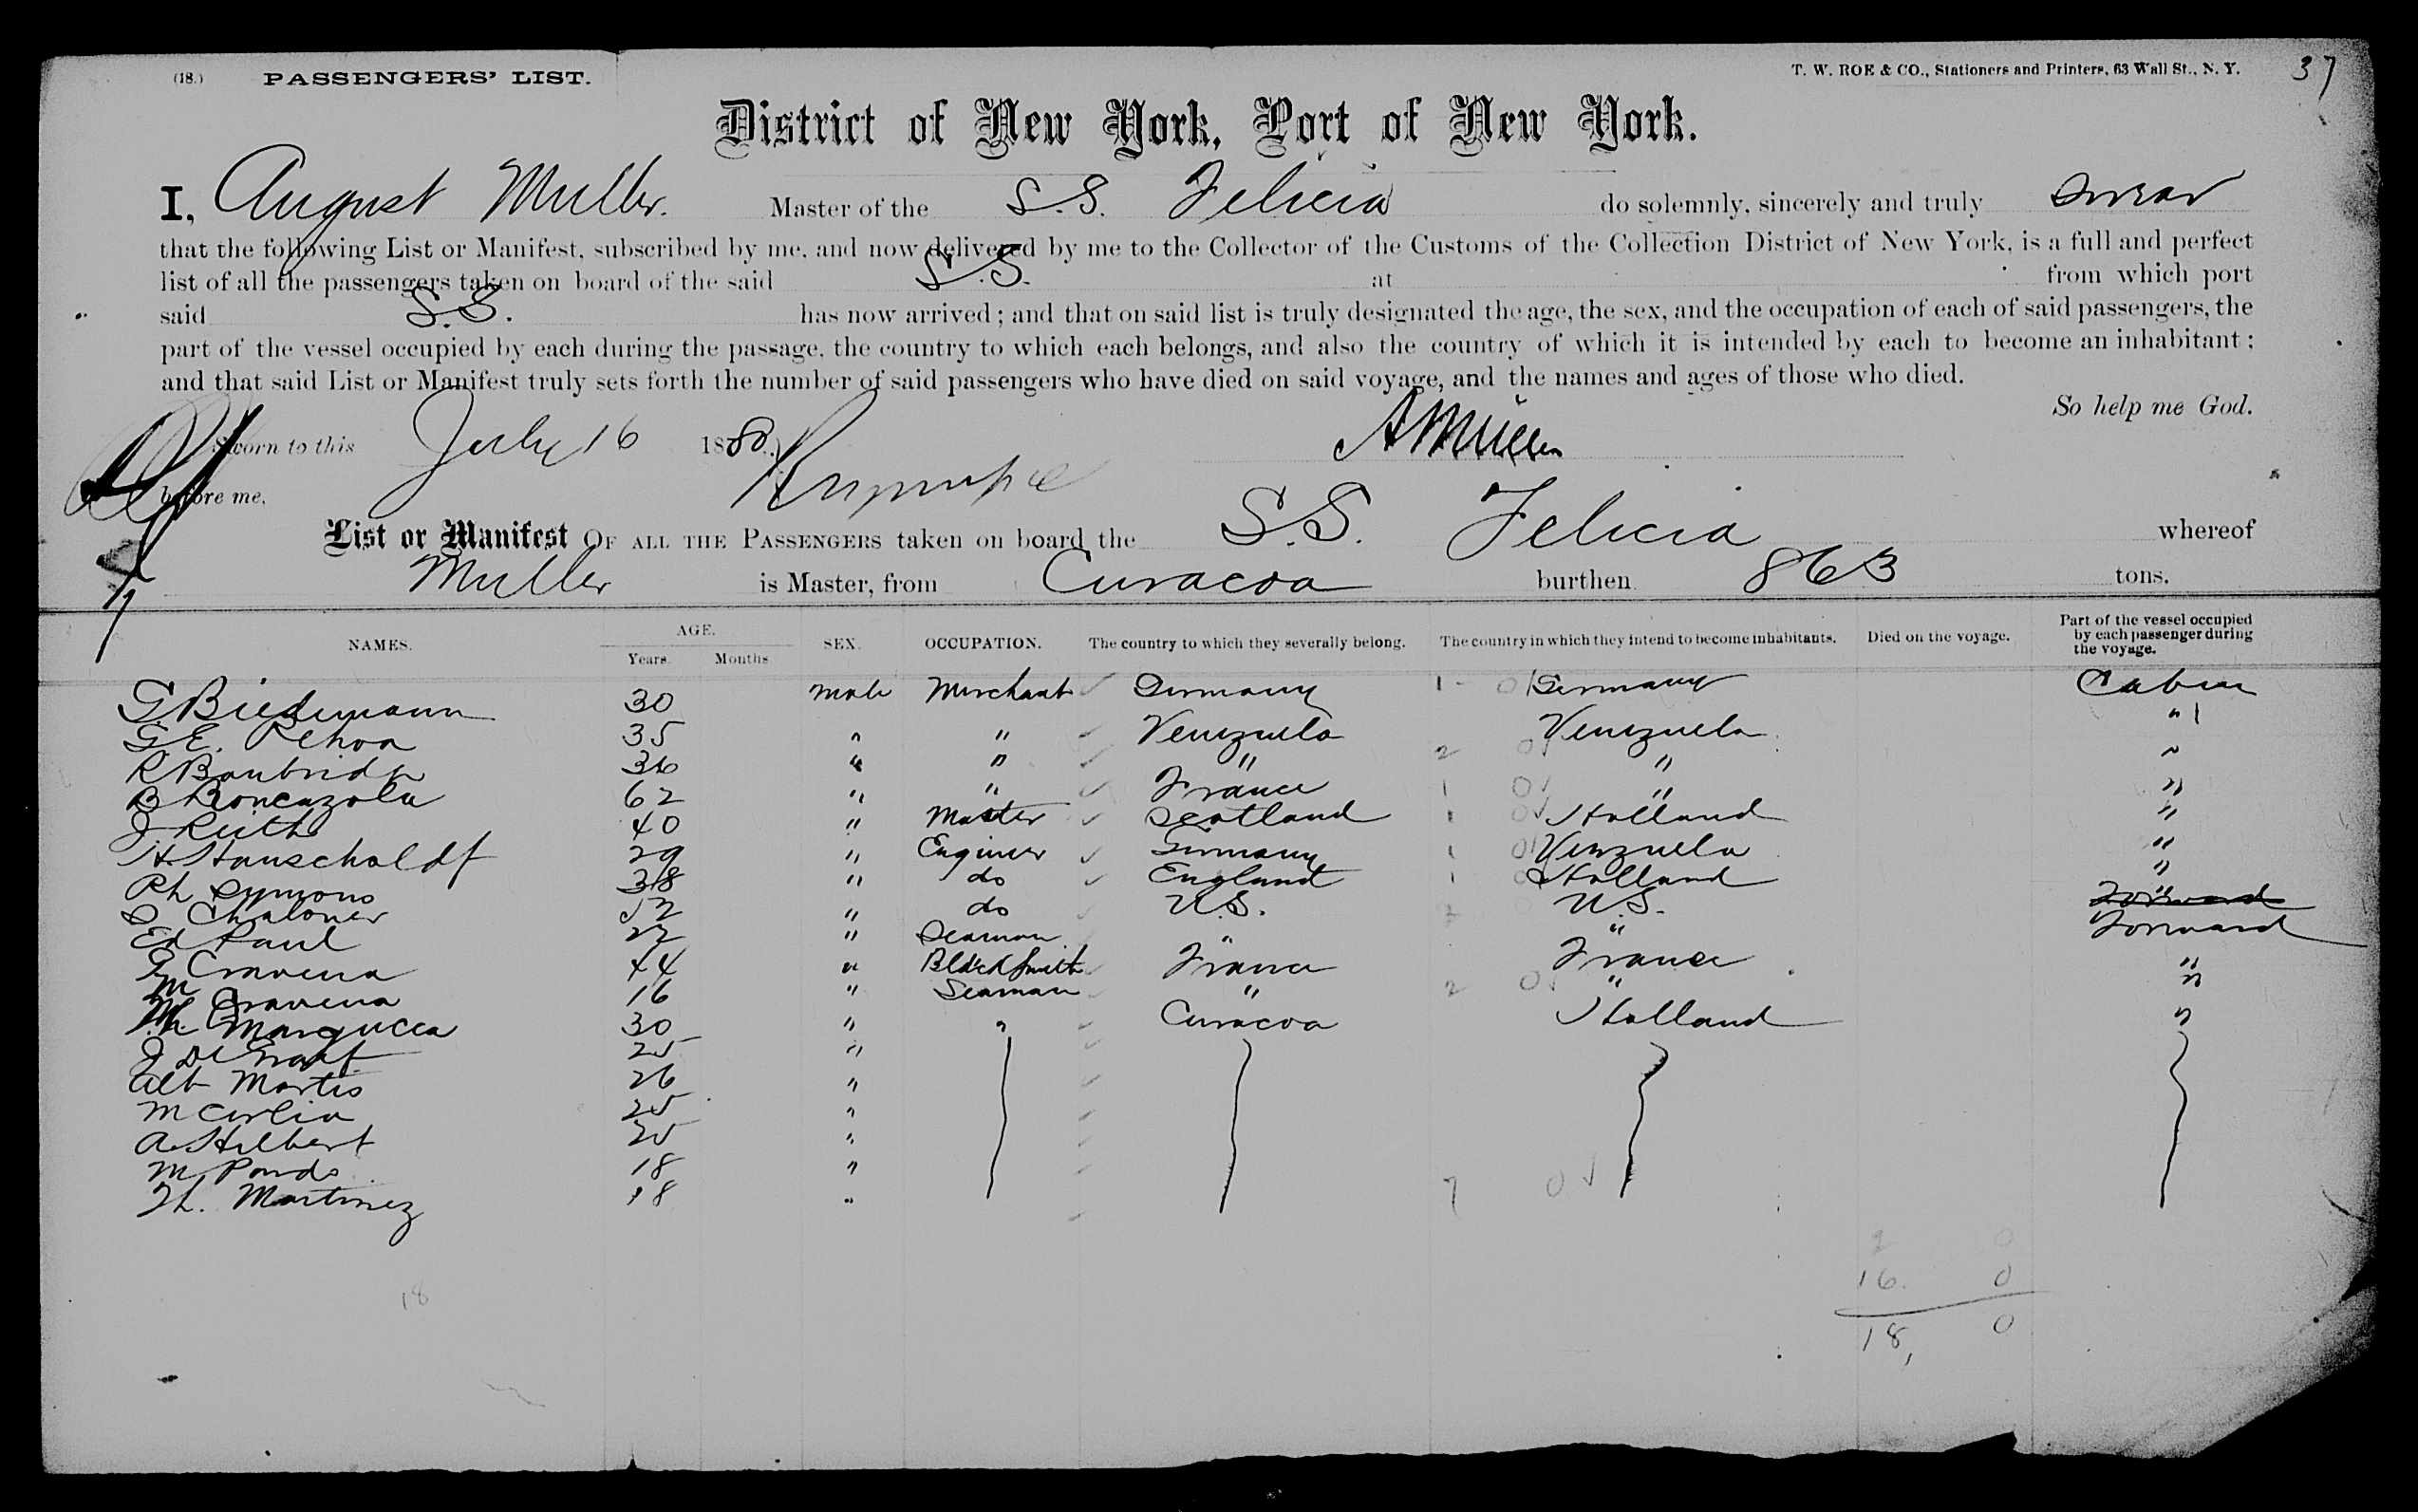 (18.) PASSENGERS' LIST. T. W. ROE & CO., Stationers and Printers, 63 Wall St., N. Y. 37
District of New York, Port of New York.
I, August Muller. Master of the S.S. Felicia do solemnly, sincerely and truly swear
that the following List or Manifest, subscribed by me, and now delivered by me to the Collector of the Customs of the Collection District of New York, is a full and perfect
list of all the passengers taken on board of the said S.S. at from which port
said S.S. has now arrived; and that on said list is truly designated the age, the sex, and the occupation of each of said passengers, the
part of the vessel occupied by each during the passage, the country to which each belongs, and also the country of which it is intended by each to become an inhabitant;
and that said List or Manifest truly sets forth the number of said passengers who have died on said voyage, and the names and ages of those who died.
So help me God.
Sworn to this July 16 1880 A Muller
before me,
List or Manifest OF ALL THE PASSENGERS taken on board the S.S. Felicia whereof
Muller is Master, from Curacoa burthen 863 tons.
NAMES. AGE. Years. Months. SEX. OCCUPATION. The country to which they severally belong. The country in which they intend to become inhabitants. Died on the voyage. Part of the vessel occupied by each passenger during the voyage.
G Biedermann 30 male Merchant Germany 1 Germany Cabin
G E. 35 " " Venezuela Venezuela "
R 36 " " " 2 " "
B 62 " " France 1 " "
J Reith 40 " Master Scotland 1 Holland "
H. 29 " Engineer Germany 1 Venezuela "
Ph Symons 38 " do England 1 Holland "
S Chaloner 52 " do U.S. U.S. "
Ed Paul 22 " Seaman " " Forward
Cravena 44 " BlackSmith France France "
M Cravena 16 " Seaman " 2 " "
30 " " Curacoa Holland "
J de Graaf 25 "
Alb Martis 26 "
M 25 "
A. Hilbert 25 "
M 18 "
Th. Martinez 18 " 7 0
2 0
18 16. 0
18, 0